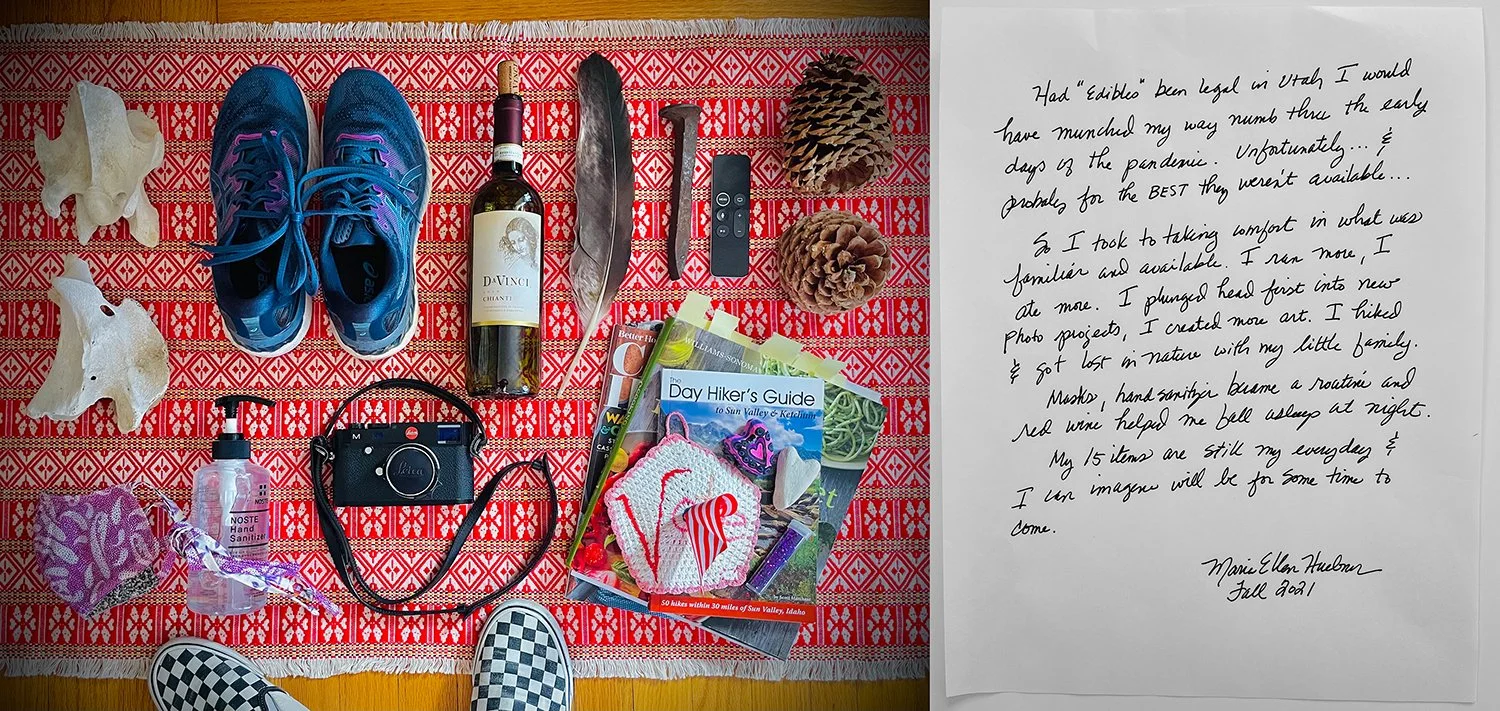 LINEA
DAVINCI
CHIANTI
MENU
Better Ho
WILLIAMS-SONOMA
The
Day Hiker's Guide
to Sun Valley & Ketchum
50 hikes within 30 miles of Sun Valley, Idaho
by Scott
M
Leica
Leica
asics
NOSTE
NOSTE
Hand
Sanitizer
Had "Edibles" been legal in Utah I would
have munched my way numb thru the early
days of the pandemic. Unfortunately... &
probably for the BEST they weren't available...
So I took to taking comfort in what was
familiar and available. I ran more, I
ate more. I plunged head first into new
photo projects, I created more art. I hiked
& got lost in nature with my little family.
Masks, hand sanitizer became a routine and
red wine helped me fall asleep at night.
My 15 items are still my everyday &
I can imagine will be for some time to
come.
Marie Ellen Huebner
Fall 2021